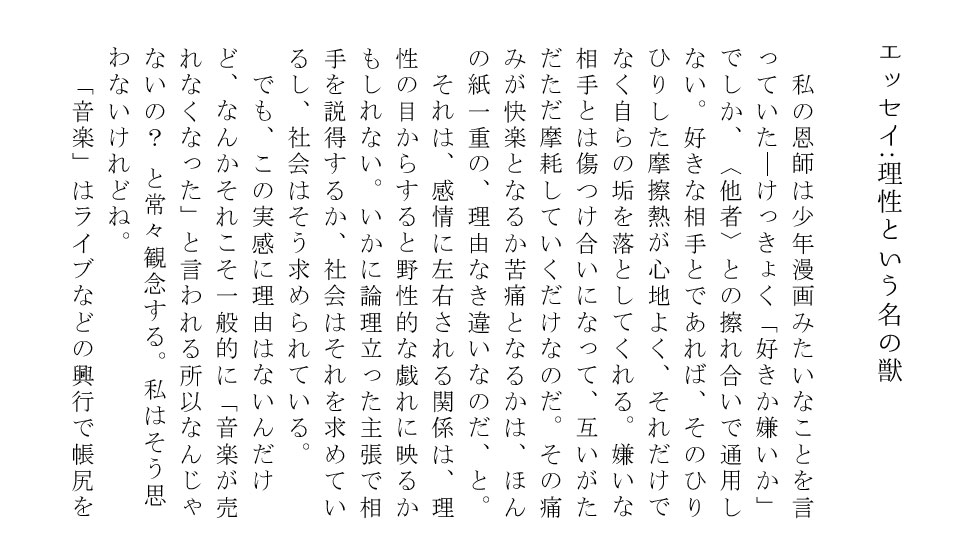 エッセイ:理性という名の獣
　私の恩師は少年漫画みたいなことを言
っていた―けっきょく「好きか嫌いか」
でしか、〈他者〉との擦れ合いで通用し
ない。好きな相手とであれば、そのひり
ひりした摩擦熱が心地よく、それだけで
なく自らの垢を落としてくれる。嫌いな
相手とは傷つけ合いになって、互いがた
だただ摩耗していくだけなのだ。その痛
みが快楽となるか苦痛となるかは、ほん
の紙一重の、理由なき違いなのだ、と。
　それは、感情に左右される関係は、理
性の目からすると野性的な戯れに映るか
もしれない。いかに論理立った主張で相
手を説得するか、社会はそれを求めてい
るし、社会はそう求められている。
　でも、この実感に理由はないんだけ
ど、なんかそれこそ一般的に「音楽が売
れなくなった」と言われる所以なんじゃ
ないの？ と常々観念する。私はそう思
わないけれどね。
　「音楽」はライブなどの興行で帳尻を